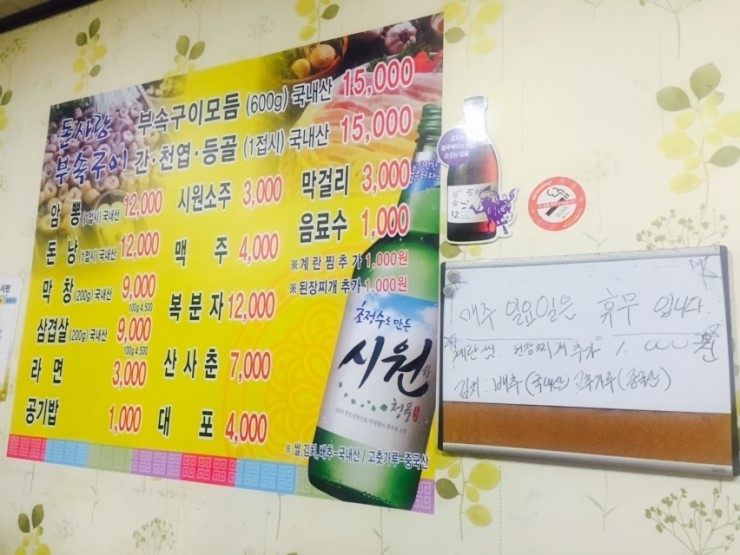 돈사랑
부속구이
부속구이모듬 (600g) 국내산 15,000
간·천엽·등골 (1접시) 국내산 15,000
암뽕 (1접시) 국내산 12,000
돈낭 (1접시) 국내산 12,000
막창 (200g) 국내산 9,000
100g 4,500
삼겹살 (200g) 국내산 9,000
100g 4,500
라면 3,000
공기밥 1,000
시원소주 3,000
맥주 4,000
복분자 12,000
산사춘 7,000
대포 4,000
막걸리 3,000
음료수 1,000
※ 계란찜 추가 1,000원
※ 된장찌개 추가 1,000원
초정수로 만든
시원
청풍
※ 쌀,김치,배추-국내산 / 고춧가루-중국산
매주 일요일은 휴무 입니다.
계란찜. 된장찌개 추가 1,000원
김치: 배추(국내산) 고추가루(중국산)